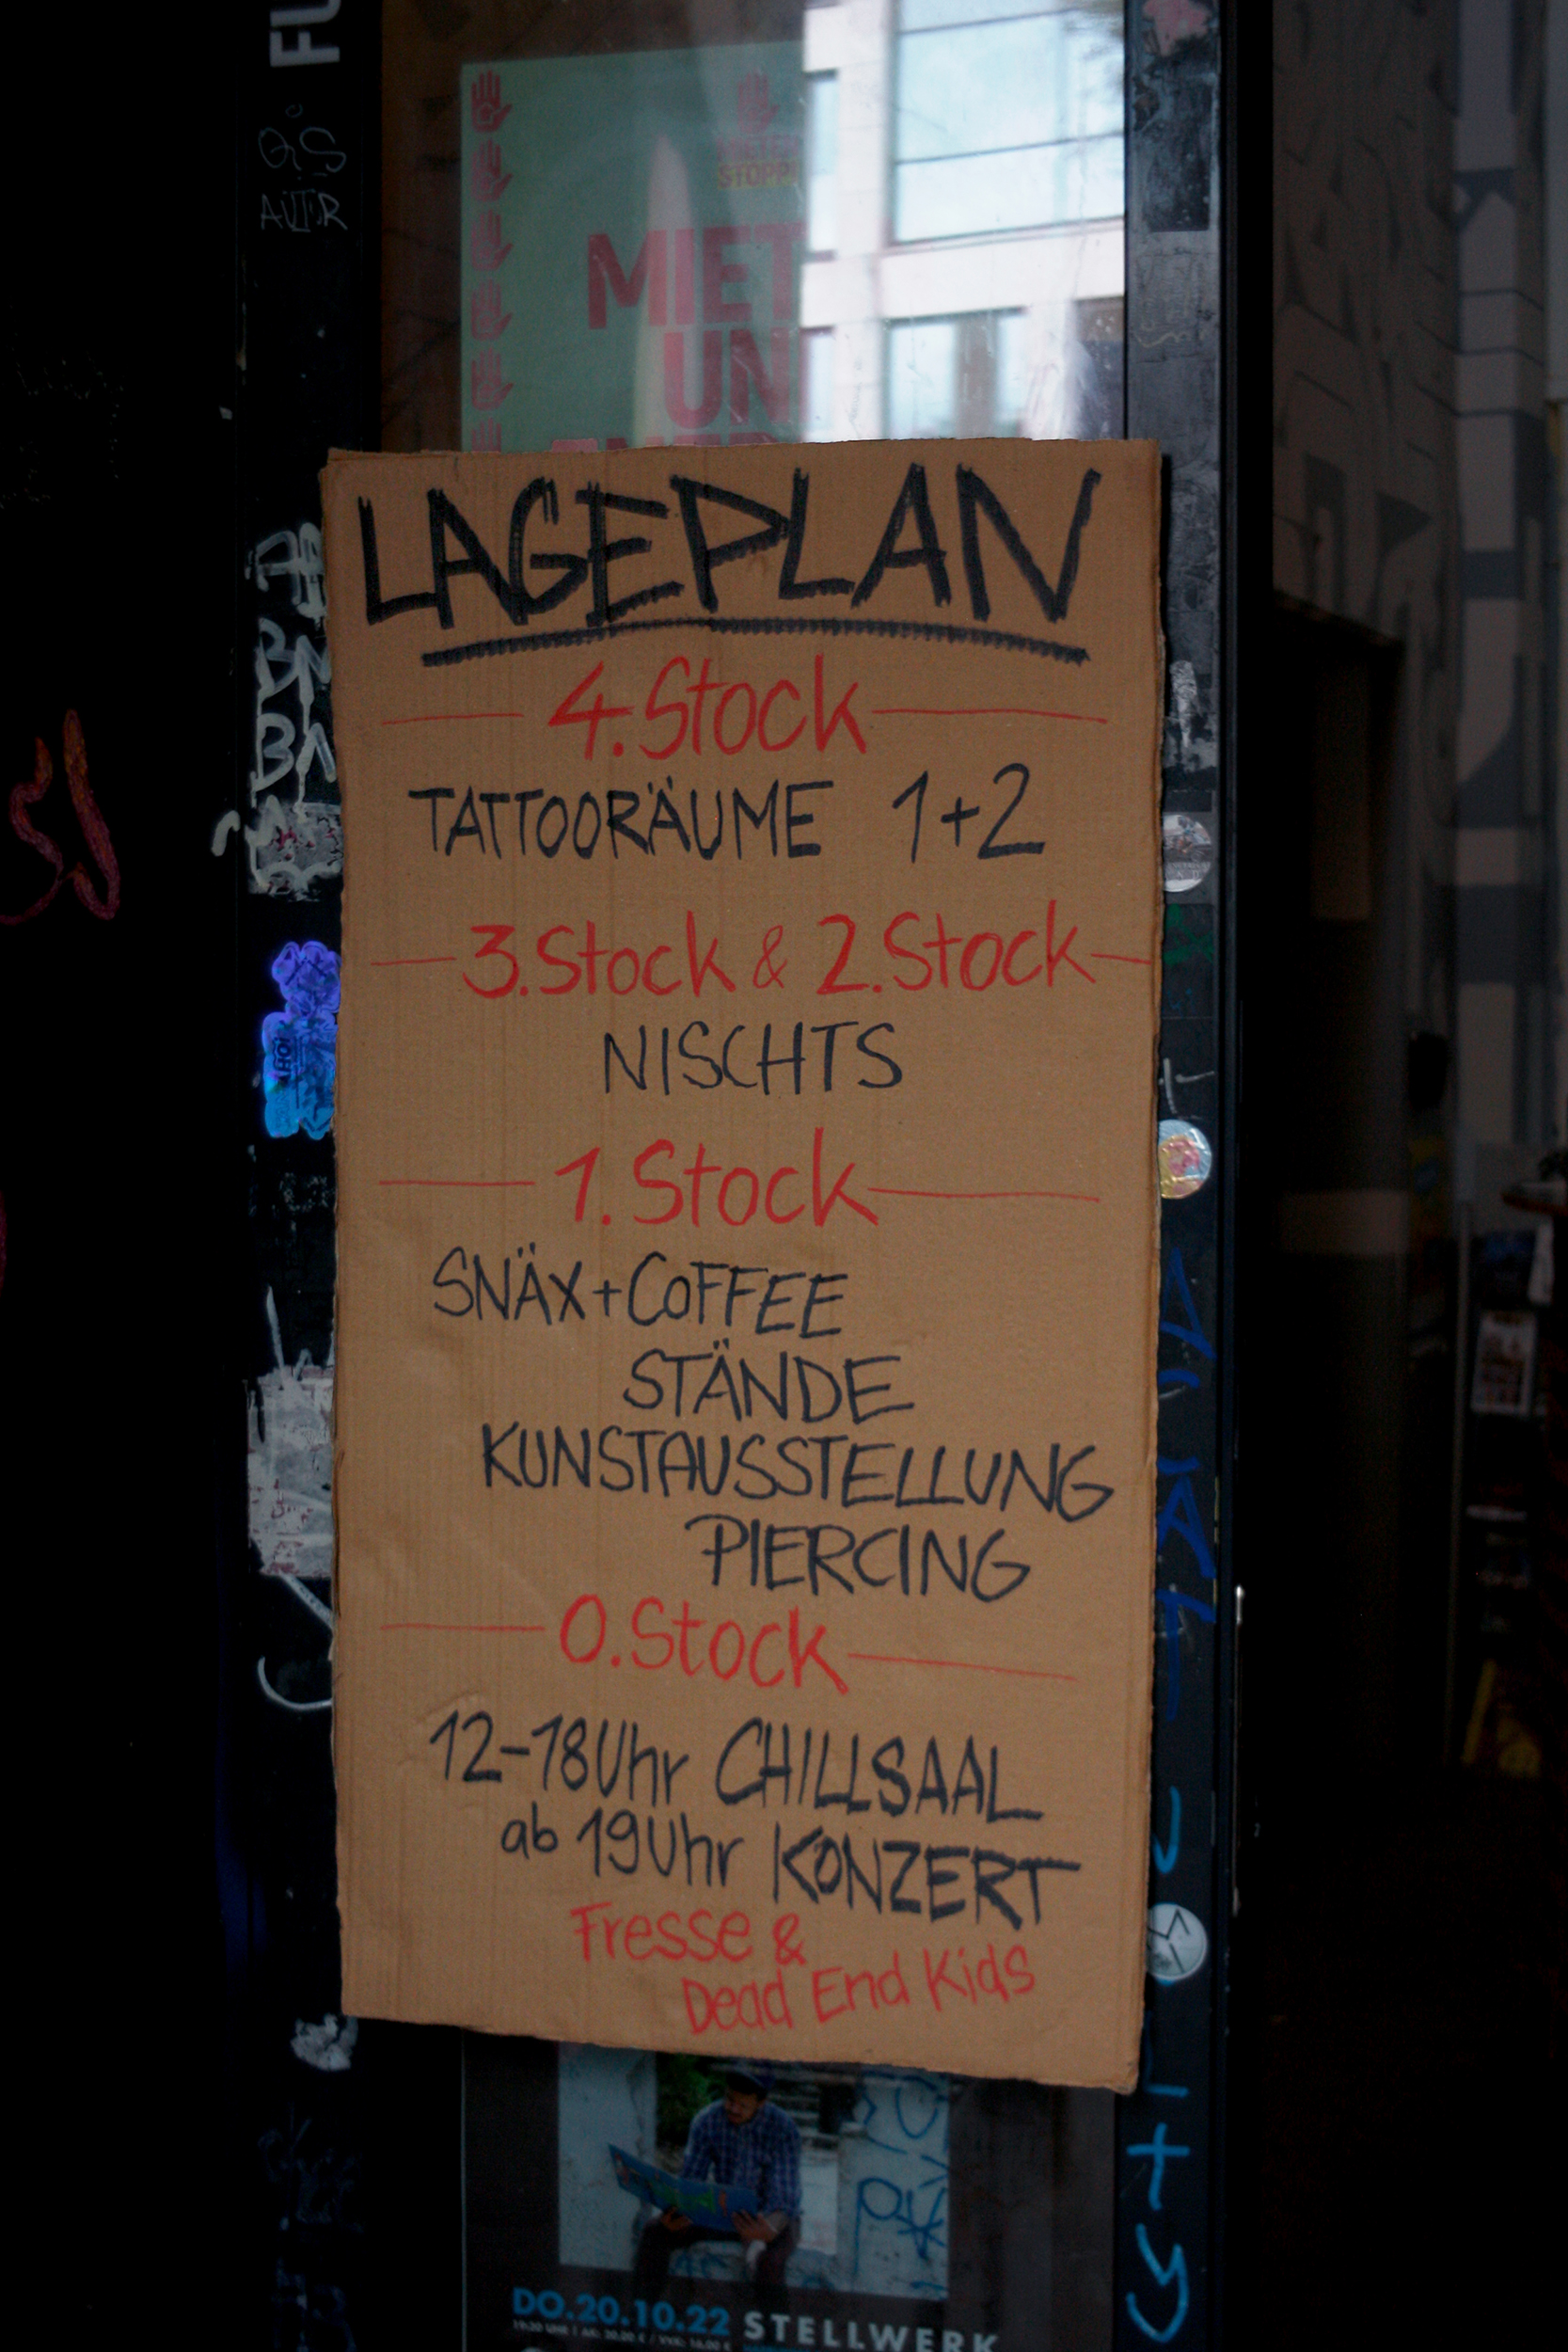 FU
MIETEN
STOPP!
MIET
UN
LAGEPLAN
4.Stock
TATTOORÄUME 1+2
3.Stock & 2.Stock
NISCHTS
1.Stock
SNÄX+COFFEE
STÄNDE
KUNSTAUSSTELLUNG
PIERCING
0.Stock
12-18Uhr CHILLSAAL
ab 19Uhr KONZERT
Fresse &
Dead End Kids
DO.20.10.22 STELLWERK